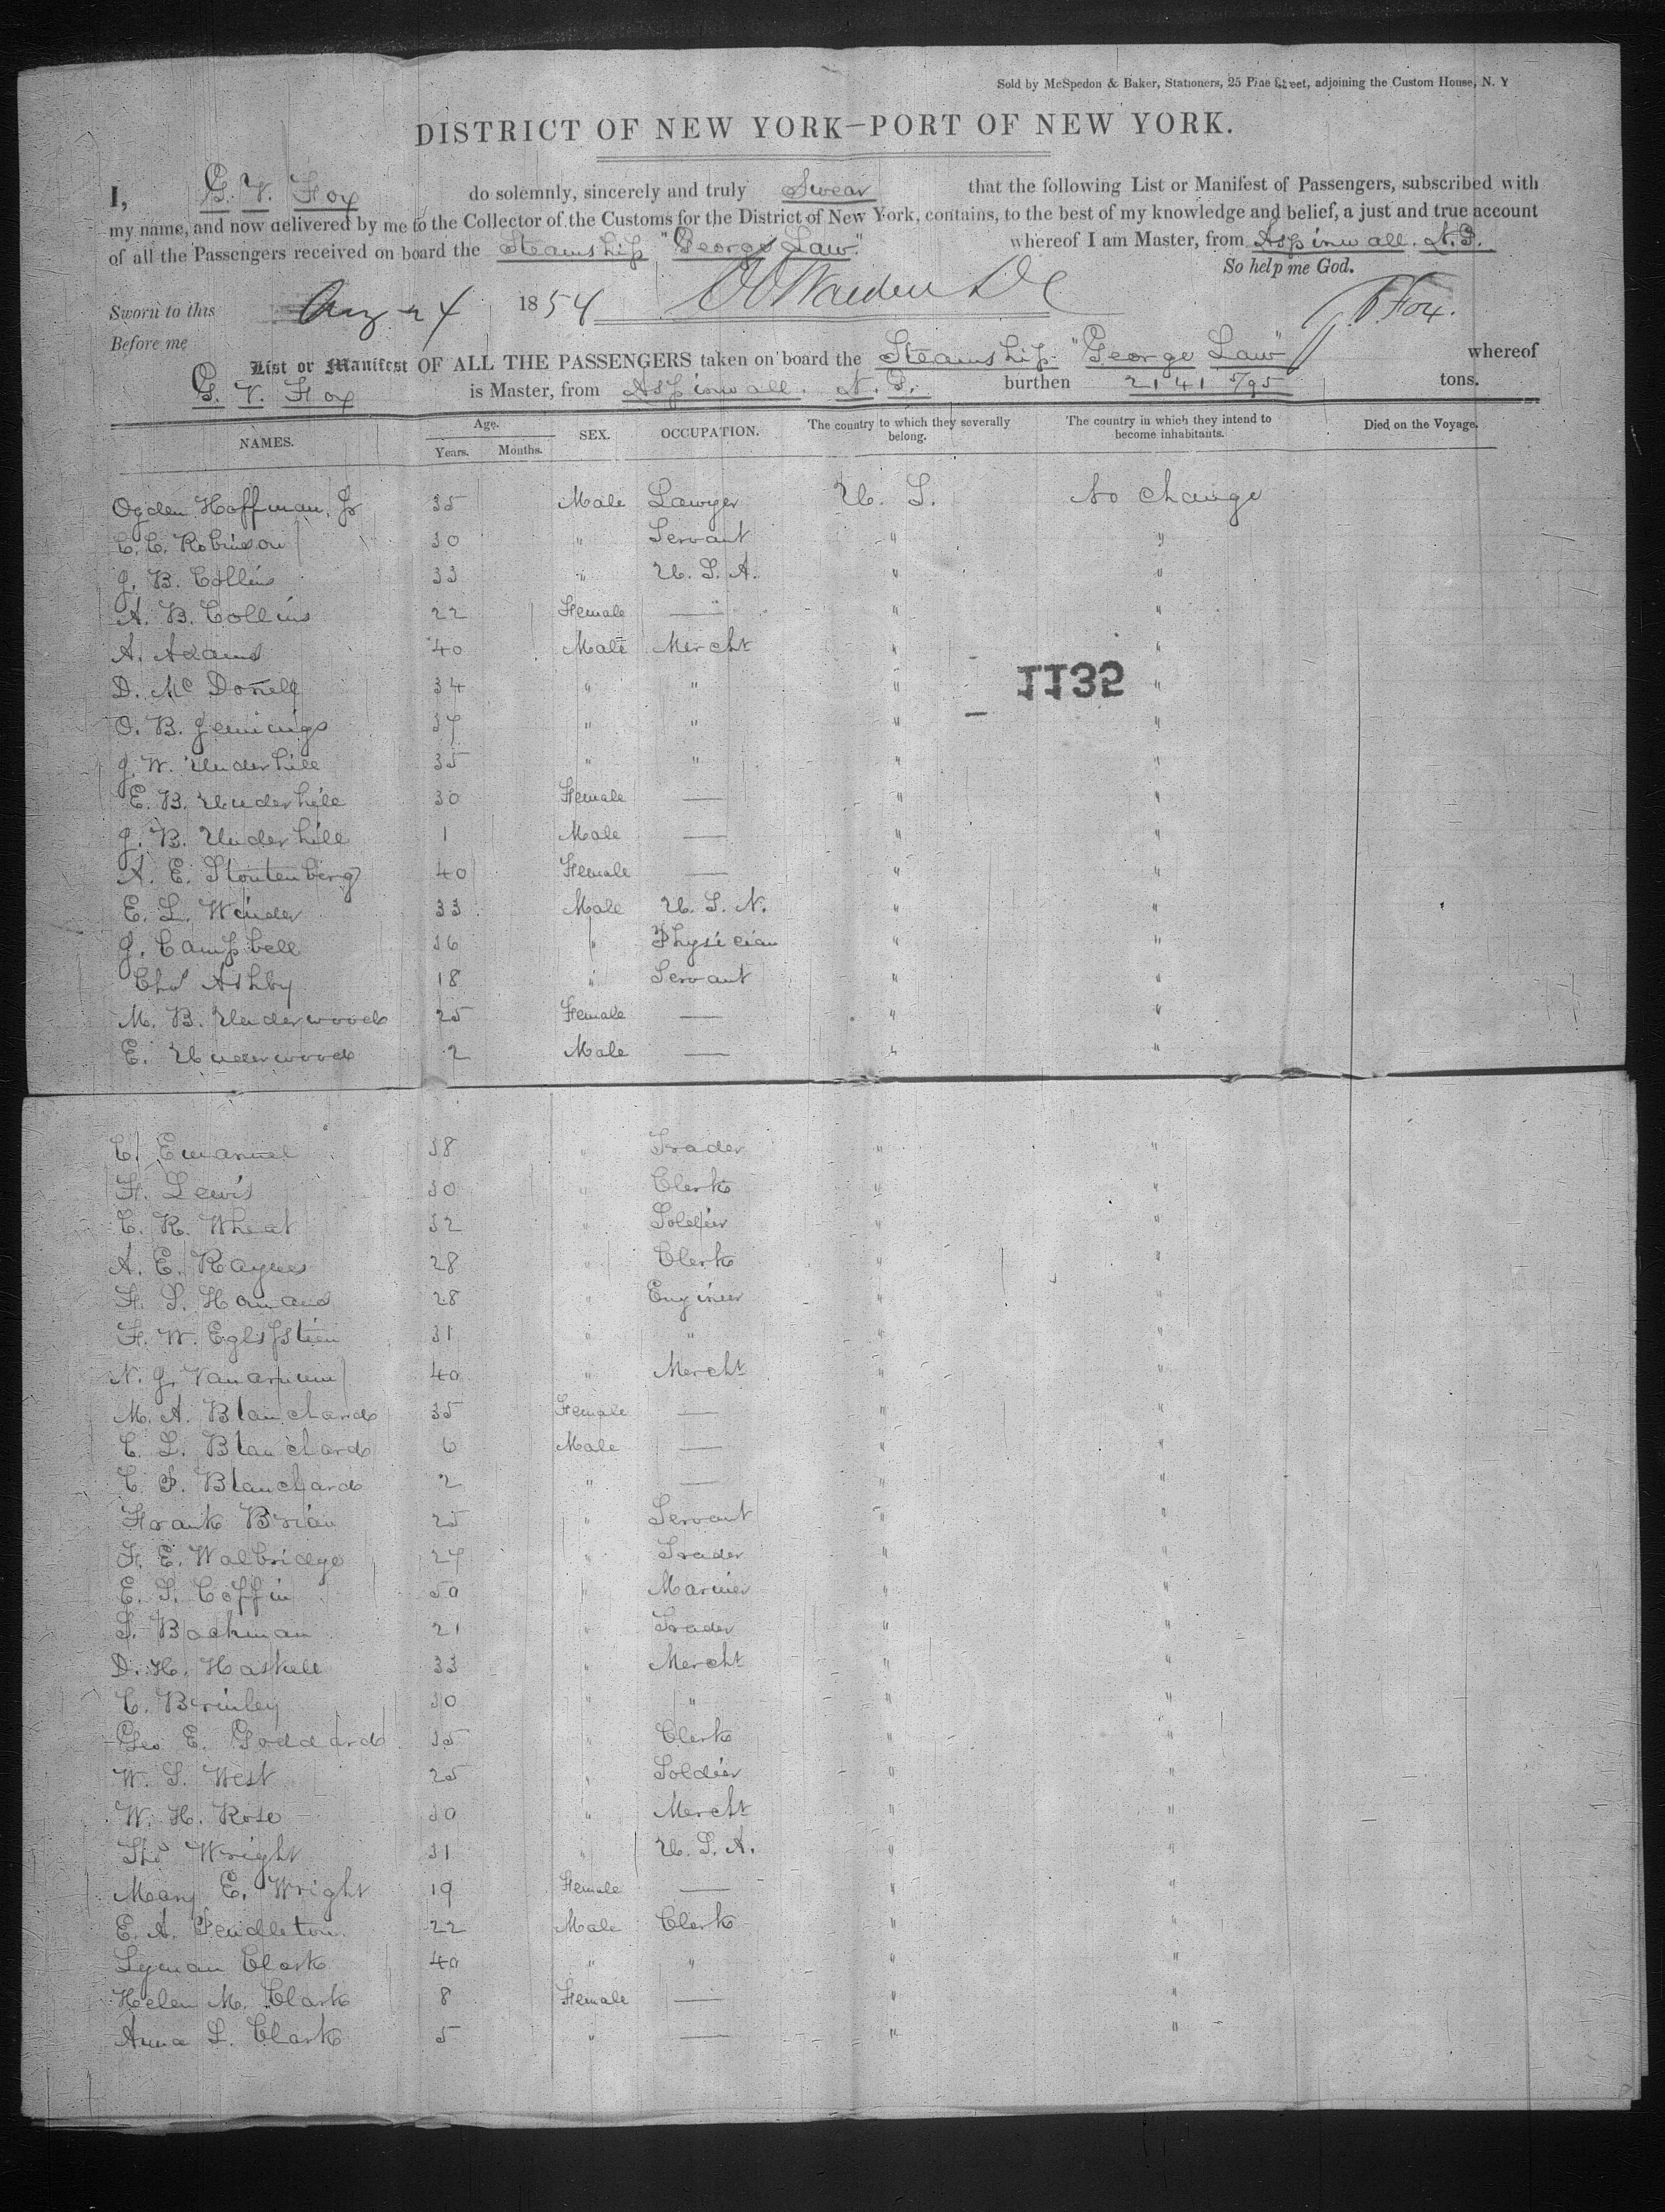 Sold by McSpedon & Baker, Stationers, 25 Pine Street, adjoining the Custom House, N. Y
DISTRICT OF NEW YORK—PORT OF NEW YORK.
I, G. V. Fox do solemnly, sincerely and truly Swear that the following List or Manifest of Passengers, subscribed with
my name, and now delivered by me to the Collector of the Customs for the District of New York, contains, to the best of my knowledge and belief, a just and true account
of all the Passengers received on board the Steamship "George Law" whereof I am Master, from Aspinwall. N. G.
So help me God.
Sworn to this Aug 24 1854 G. V. Fox.
Before me
List or Manifest OF ALL THE PASSENGERS taken on board the Steamship "George Law" whereof
G. V. Fox is Master, from Aspinwall. N. G. burthen 2141 5/95 tons.
NAMES. Age. Years. Months. SEX. OCCUPATION. The country to which they severally belong. The country in which they intend to become inhabitants. Died on the Voyage.
Ogden Hoffman, Jr 35 Male Lawyer U. S. No change
C. C. Robinson 30 " Servant " "
J. B. Collins 33 " U. S. A. " "
A. B. Collins 22 Female — " "
A. Adams 40 Male Mercht " "
D. Mc Donell 34 " " " "
1135
O. B. Jennings 37 " " " "
J. W. Underhill 35 " " " "
E. B. Underhill 30 Female — " "
J. B. Underhill 1 Male — " "
A. E. Stoutenberg 40 Female — " "
E. L. Winder 33 Male U. S. N. " "
J. Campbell 36 " Physician " "
Chs Ashby 18 " Servant " "
M. B. Underwood 25 Female — " "
E. Underwood 2 Male — " "
C. Emanuel 38 " Trader " "
F. Lewis 30 " Clerk " "
C. R. Wheat 32 " Soldier " "
A. E. Raynes 28 " Clerk " "
F. S. 28 " Engineer " "
F. W. Eglofstien 31 " " " "
N. J. Vanarnum 40 " Mercht " "
M. A. Blanchard 35 Female — " "
C. L. Blanchard 6 Male — " "
C. P. Blanchard 2 " — " "
Frank Brian 25 " Servant " "
F. E. Walbridge 27 " Trader " "
E. S. Coffin 50 " Mariner " "
S. Bachman 21 " Trader " "
D. H. Haskell 33 " Mercht " "
C. Brinley 30 " " " "
Geo E. Goddard 35 " Clerk " "
W. S. West 25 " Soldier " "
W. H. Rose 30 " Mercht " "
Tho Wright 31 " U. S. A. " "
Mary E. Wright 19 Female — " "
E. A. Pendleton 22 Male Clerk " "
Lyman Clark 40 " " " "
Helen M. Clark 8 Female — " "
Anna L. Clark 5 " — " "